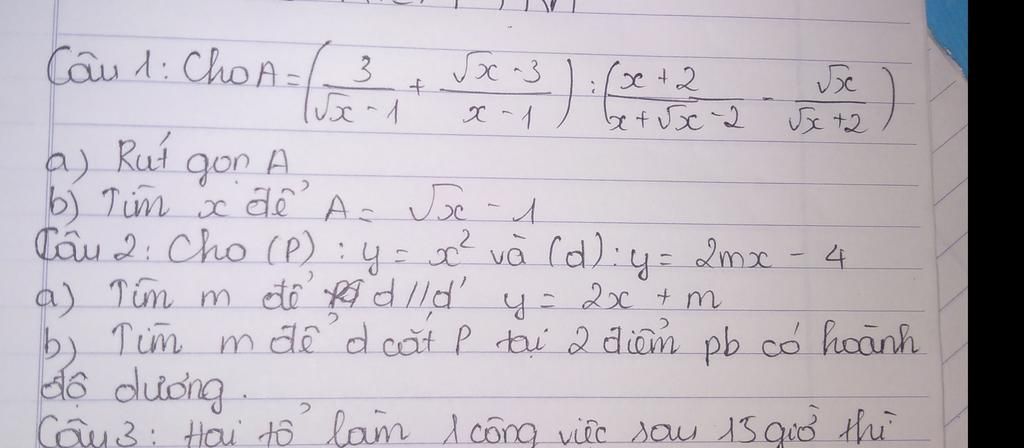 Câu 1: Cho A = (3/(√x - 1) + (√x - 3)/(x - 1)) : ((x + 2)/(x + √x - 2) - √x/(√x + 2))
a) Rút gọn A
b) Tìm x để A = √x - 1
Câu 2: Cho (P) : y = x² và (d) : y = 2mx - 4
a) Tìm m để d // d' y = 2x + m
b) Tìm m để d cắt P tại 2 điểm pb có hoành
độ dương.
Câu 3: Hai tổ làm 1 công việc sau 15 giờ thì